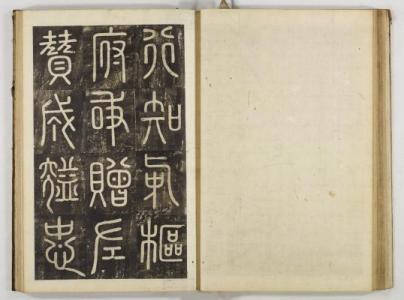 行知中樞
府事贈左
贊成謚忠